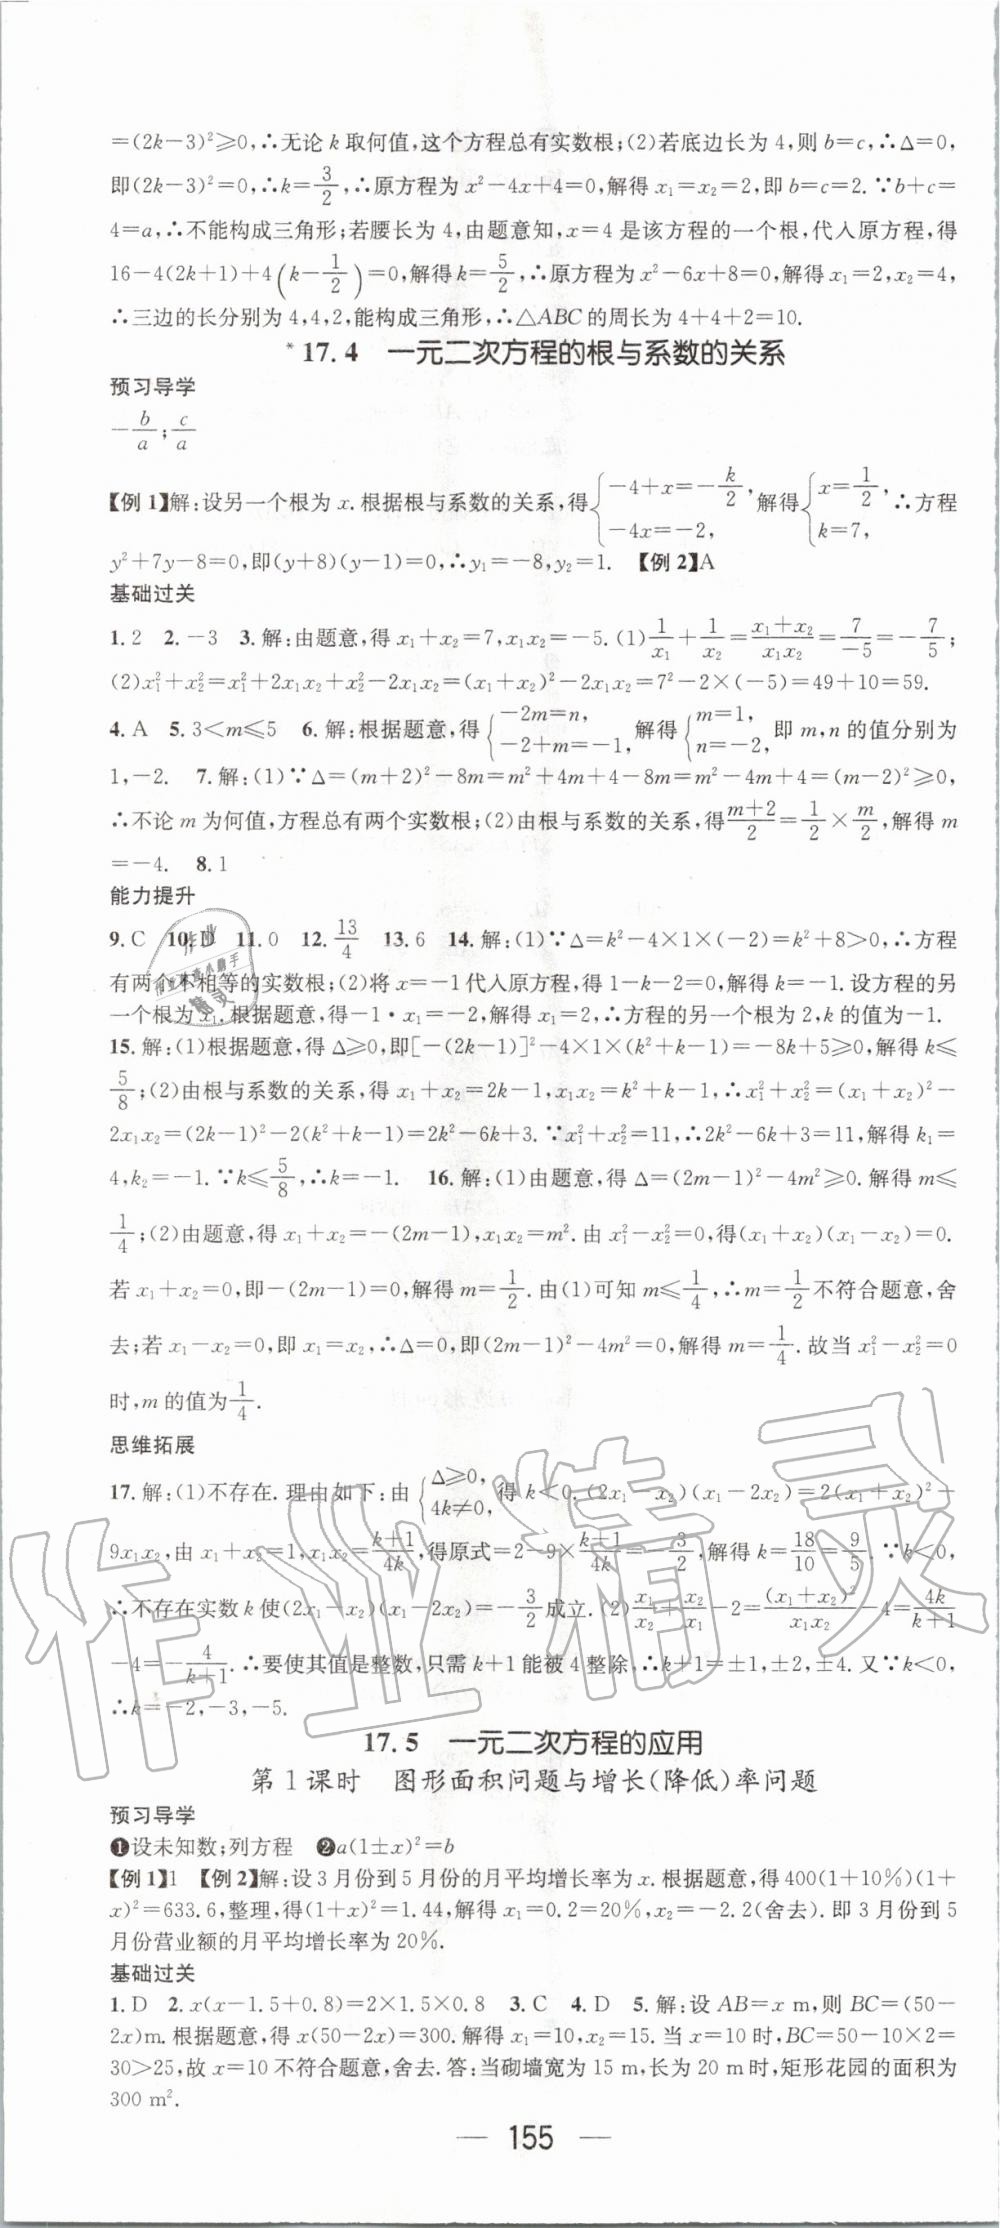 =(2k-3)²≥0,∴无论 k 取何值,这个方程总有实数根;(2)若底边长为 4,则 b=c,∴Δ=0,
即(2k-3)²=0,∴k=3/2,∴原方程为 x²-4x+4=0,解得 x₁=x₂=2,即 b=c=2.∵b+c=
4=a,∴不能构成三角形;若腰长为 4,由题意知,x=4 是该方程的一个根,代入原方程,得
16-4(2k+1)+4(k-1/2)=0,解得 k=5/2,∴原方程为 x²-6x+8=0,解得 x₁=2,x₂=4,
∴三边的长分别为 4,4,2,能构成三角形,∴△ABC 的周长为 4+4+2=10.
*17.4 一元二次方程的根与系数的关系
预习导学
-b/a;c/a
【例 1】解:设另一个根为 x.根据根与系数的关系,得{-4+x=-k/2, -4x=-2,解得{x=1/2, k=7,∴方程
y²+7y-8=0,即(y+8)(y-1)=0,∴y₁=-8,y₂=1. 【例 2】A
基础过关
1.2 2.-3 3.解:由题意,得 x₁+x₂=7,x₁x₂=-5.(1)1/x₁+1/x₂=(x₁+x₂)/(x₁x₂)=7/(-5)=-7/5;
(2)x₁²+x₂²=x₁²+2x₁x₂+x₂²-2x₁x₂=(x₁+x₂)²-2x₁x₂=7²-2×(-5)=49+10=59.
4.A 5.3<m≤5 6.解:根据题意,得{-2m=n, -2+m=-1,解得{m=1, n=-2,即 m,n 的值分别为
1,-2. 7.解:(1)∵Δ=(m+2)²-8m=m²+4m+4-8m=m²-4m+4=(m-2)²≥0,
∴不论 m 为何值,方程总有两个实数根;(2)由根与系数的关系,得(m+2)/2=1/2×m/2,解得 m
=-4. 8.1
能力提升
9.C 10.D 11.0 12.13/4 13.6 14.解:(1)∵Δ=k²-4×1×(-2)=k²+8>0,∴方程
有两个不相等的实数根;(2)将 x=-1 代入原方程,得 1-k-2=0,解得 k=-1.设方程的另
一个根为 x₁.根据题意,得-1·x₁=-2,解得 x₁=2,∴方程的另一个根为 2,k 的值为-1.
15.解:(1)根据题意,得 Δ≥0,即[-(2k-1)]²-4×1×(k²+k-1)=-8k+5≥0,解得 k≤
5/8;(2)由根与系数的关系,得 x₁+x₂=2k-1,x₁x₂=k²+k-1,∴x₁²+x₂²=(x₁+x₂)²-
2x₁x₂=(2k-1)²-2(k²+k-1)=2k²-6k+3.∵x₁²+x₂²=11,∴2k²-6k+3=11,解得 k₁=
4,k₂=-1.∵k≤5/8,∴k=-1. 16.解:(1)由题意,得 Δ=(2m-1)²-4m²≥0.解得 m≤
1/4;(2)由题意,得 x₁+x₂=-(2m-1),x₁x₂=m².由 x₁²-x₂²=0,得(x₁+x₂)(x₁-x₂)=0.
若 x₁+x₂=0,即-(2m-1)=0,解得 m=1/2.由(1)可知 m≤1/4,∴m=1/2不符合题意,舍
去;若 x₁-x₂=0,即 x₁=x₂,∴Δ=0,即(2m-1)²-4m²=0,解得 m=1/4.故当 x₁²-x₂²=0
时,m 的值为1/4.
思维拓展
17.解:(1)不存在.理由如下:由{Δ≥0, 4k≠0,得 k<0.(2x₁-x₂)(x₁-2x₂)=2(x₁+x₂)²-
9x₁x₂,由 x₁+x₂=1,x₁x₂=(k+1)/4k,得原式=2-9×(k+1)/4k=-3/2,解得 k=18/10=9/5.∵k<0,
∴不存在实数 k 使(2x₁-x₂)(x₁-2x₂)=-3/2成立.(2)x₁/x₂+x₂/x₁-2=(x₁+x₂)²/(x₁x₂)-4=4k/(k+1)
-4=-4/(k+1).∴要使其值是整数,只需 k+1 能被 4 整除,∴k+1=±1,±2,±4.又∵k<0,
∴k=-2,-3,-5.
17.5 一元二次方程的应用
第 1 课时 图形面积问题与增长(降低)率问题
预习导学
❶设未知数;列方程 ❷a(1±x)²=b
【例 1】1 【例 2】解:设 3 月份到 5 月份的月平均增长率为 x.根据题意,得 400(1+10%)(1+
x)²=633.6,整理,得(1+x)²=1.44,解得 x₁=0.2=20%,x₂=-2.2(舍去).即 3 月份到 5
月份营业额的月平均增长率为 20%.
基础过关
1.D 2.x(x-1.5+0.8)=2×1.5×0.8 3.C 4.D 5.解:设 AB=x m,则 BC=(50-
2x)m.根据题意,得 x(50-2x)=300.解得 x₁=10,x₂=15.当 x=10 时,BC=50-10×2=
30>25,故 x=10 不符合题意,舍去.答:当砌墙宽为 15 m,长为 20 m 时,矩形花园的面积为
300 m².
— 155 —
作业精灵